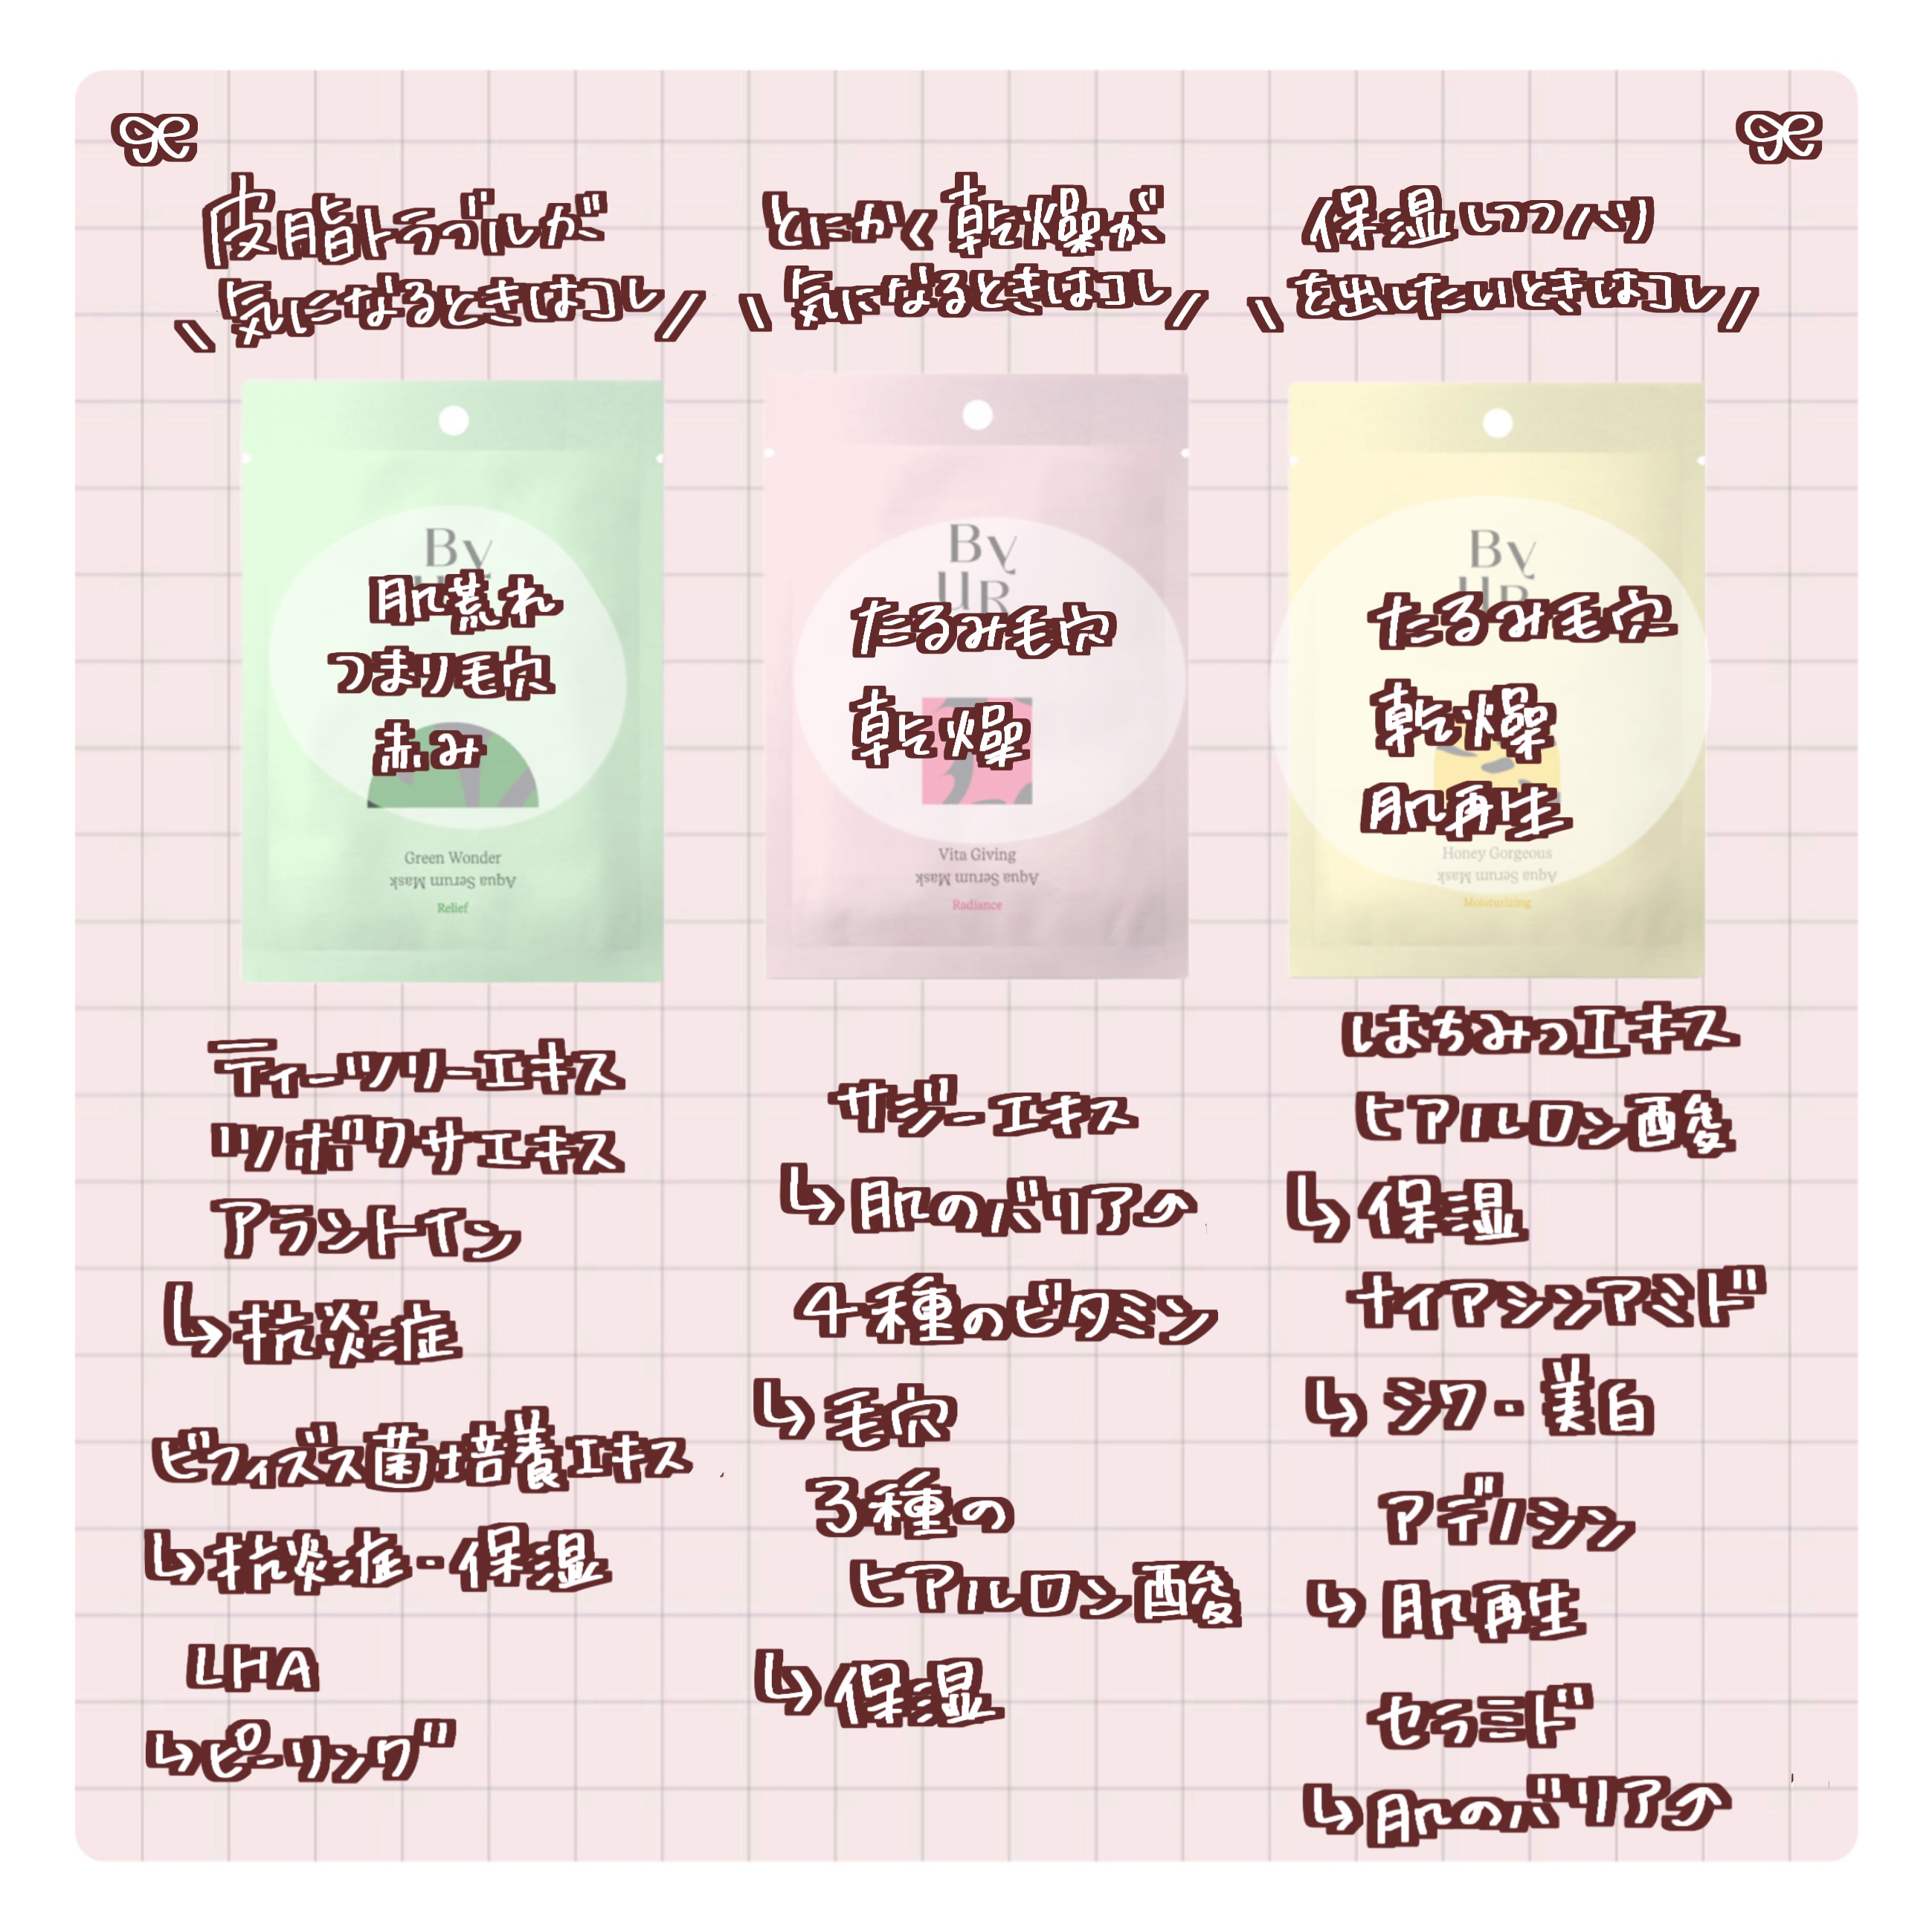 皮脂トラブルが
気になるときはコレ
肌荒れ
つまり毛穴
赤み
By
Green Wonder
Aqua Serum Mask
Relief
ティーツリーエキス
ツボクサエキス
アラントイン
↳抗炎症
ビフィズス菌培養エキス
↳抗炎症・保湿
LHA
↳ピーリング
とにかく乾燥が
気になるときはコレ
By
UR
たるみ毛穴
乾燥
Vita Giving
Aqua Serum Mask
Radiance
サジーエキス
↳肌のバリア↗
4種のビタミン
↳毛穴
3種の
ヒアルロン酸
↳保湿
保湿しつつハリ
を出したいときはコレ
By
UR
たるみ毛穴
乾燥
肌再生
Honey Gorgeous
Aqua Serum Mask
Moisturizing
はちみつエキス
ヒアルロン酸
↳保湿
ナイアシンアミド
↳シワ・美白
アデノシン
↳肌再生
セラミド
↳肌のバリア↗